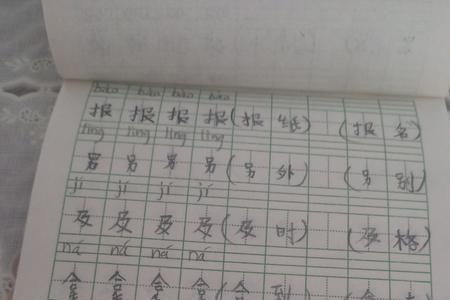 bào bào bào bào
报 报 报 报 (报 纸) (报 名)
lìng lìng lìng lìng
另 另 另 另 (另 外) (另 别)
jí jí jí jí
及 及 及 及 (及 时) (及 格)
ná ná ná ná
拿 拿 拿 拿 (拿 到) (拿